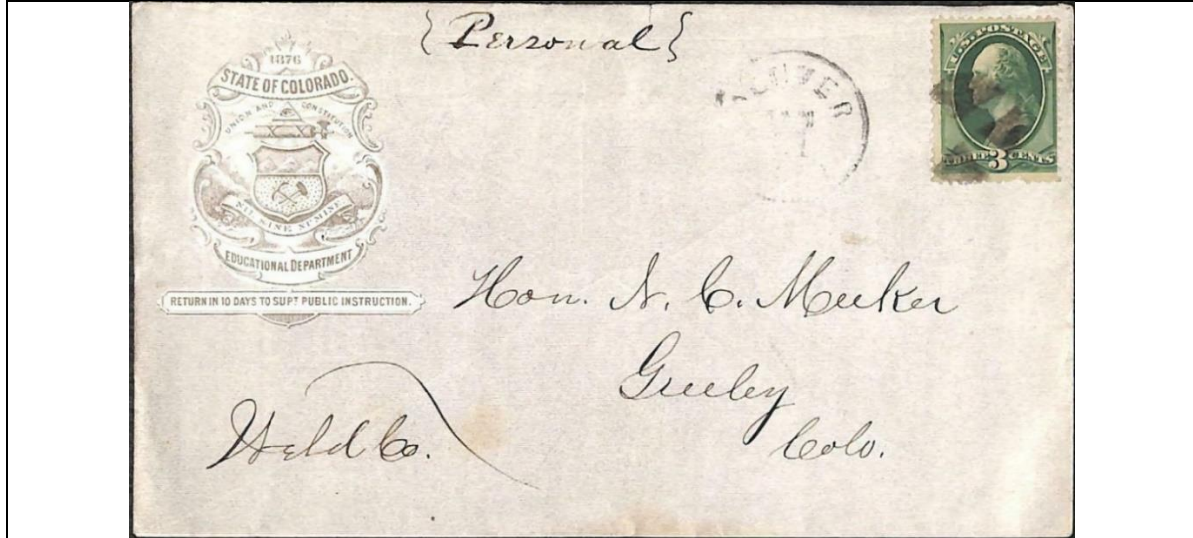 {Personal}
1876
STATE OF COLORADO.
UNION AND CONSTITUTION
NIL SINE NUMINE
EDUCATIONAL DEPARTMENT
RETURN IN 10 DAYS TO SUPT PUBLIC INSTRUCTION.
DENVER
U.S. POSTAGE
THREE 3 CENTS
Hon. N. C. Meeker
Greeley
Colo.
Weld Co.